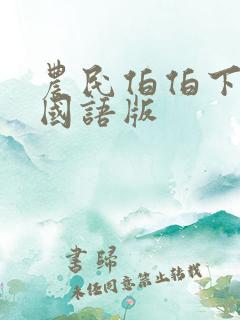 農民伯伯下
國語版
書歸
未經同意禁止轉載